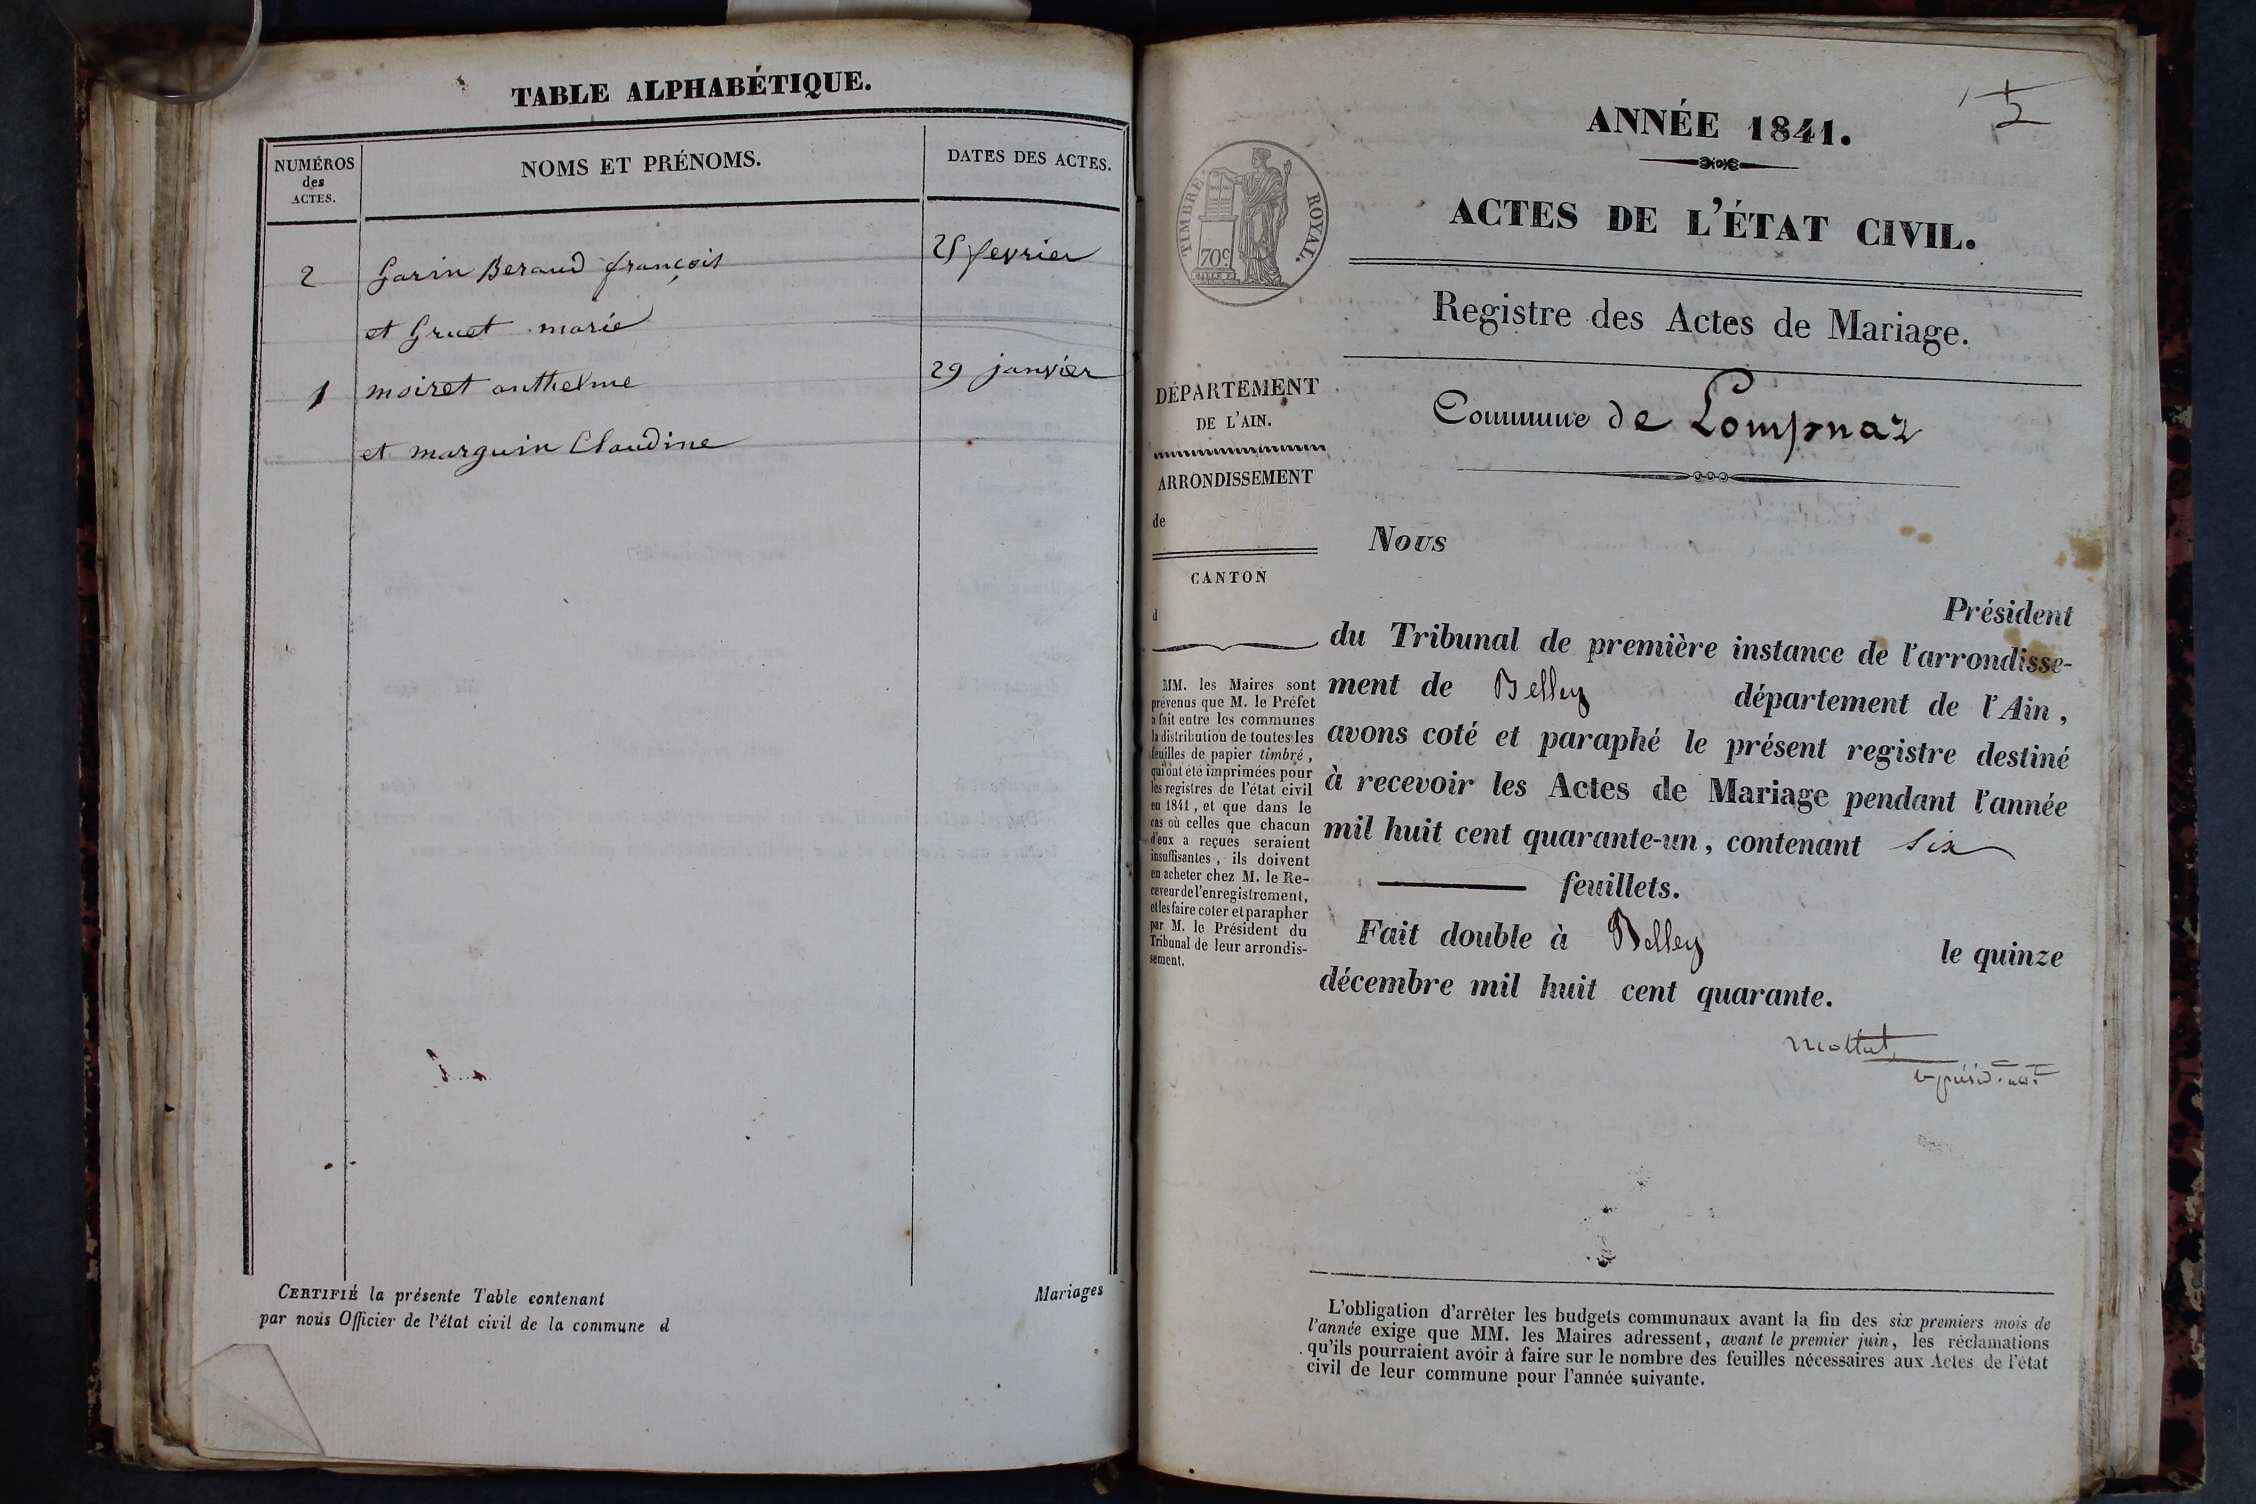 TABLE ALPHABÉTIQUE.
NUMÉROS
des
ACTES.
NOMS ET PRÉNOMS.
DATES DES ACTES.
2 Garin Beraud françois 25 fevrier
et Gruet marie
1 moiret anthelme 29 janvier
et marguin Claudine
CERTIFIÉ la présente Table contenant Mariages
par nous Officier de l'état civil de la commune d
ANNÉE 1841.
ACTES DE L'ÉTAT CIVIL.
TIMBRE ROYAL.
70c.
Registre des Actes de Mariage.
Commune de Lompnaz
DÉPARTEMENT
DE L'AIN.
ARRONDISSEMENT
de
CANTON
d
MM. les Maires sont
prévenus que M. le Préfet
a fait entre les communes
la distribution de toutes les
feuilles de papier timbré,
qui ont été imprimées pour
les registres de l'état civil
en 1841, et que dans le
cas où celles que chacun
d'eux a reçues seraient
insuffisantes, ils doivent
en acheter chez M. le Re-
ceveur de l'enregistrement,
et les faire coter et parapher
par M. le Président du
Tribunal de leur arrondis-
sement.
Nous
Président
du Tribunal de première instance de l'arrondisse-
ment de Belley département de l'Ain,
avons coté et paraphé le présent registre destiné
à recevoir les Actes de Mariage pendant l'année
mil huit cent quarante-un, contenant six
feuillets.
Fait double à Belley le quinze
décembre mil huit cent quarante.
L'obligation d'arrêter les budgets communaux avant la fin des six premiers mois de
l'année exige que MM. les Maires adressent, avant le premier juin, les réclamations
qu'ils pourraient avoir à faire sur le nombre des feuilles nécessaires aux Actes de l'état
civil de leur commune pour l'année suivante.